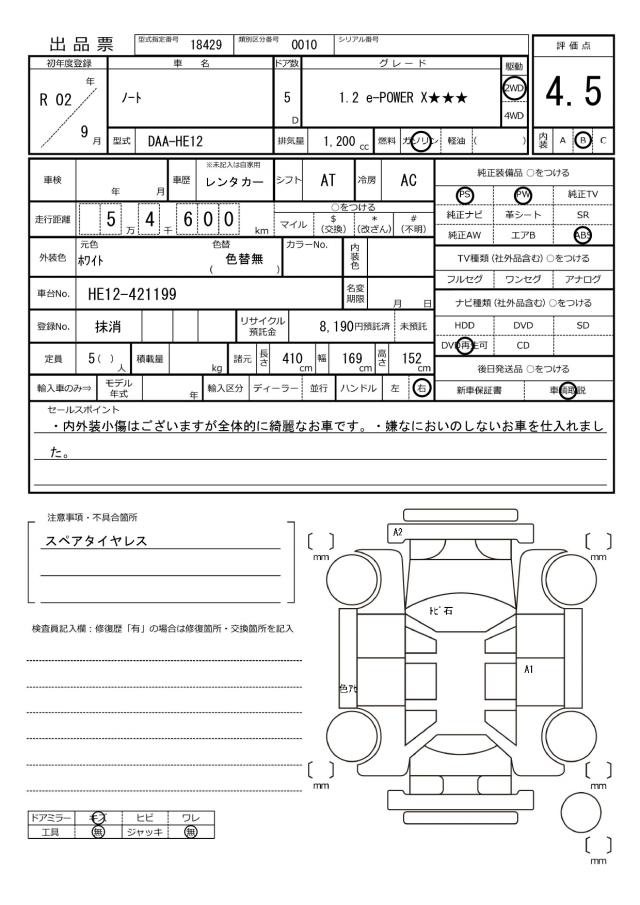 出品票 型式指定番号 18429 類別区分番号 0010 シリアル番号
評価点
4.5
初年度登録 車 名 ドア数 グレード 駆動
R 02 年 9 月 ノート 5 D 1.2 e-POWER X★★★ 2WD 4WD
型式 DAA-HE12 排気量 1,200 cc 燃料 ガソリン 軽油 ( ) 内装 A B C
車検 年 月 車歴 ※未記入は自家用 レンタカー シフト AT 冷房 AC
走行距離 5 万 4 千 6 0 0 km ○をつける マイル $ (交換) * (改ざん) # (不明)
外装色 元色 ホワイト 色替 ( 色替無 ) カラーNo. 内装色
車台No. HE12-421199 名変期限 月 日
登録No. 抹消 リサイクル預託金 8,190円預託済 未預託
定員 5( ) 人 積載量 kg 諸元 長さ 410 cm 幅 169 cm 高さ 152 cm
輸入車のみ⇒ モデル年式 年 輸入区分 ディーラー 並行 ハンドル 左 右
純正装備品 ○をつける
PS PW 純正TV
純正ナビ 革シート SR
純正AW エアB ABS
TV種類 (社外品含む) ○をつける
フルセグ ワンセグ アナログ
ナビ種類 (社外品含む) ○をつける
HDD DVD SD
DVD再生可 CD
後日発送品 ○をつける
新車保証書 車輌取説
セールスポイント
・内外装小傷はございますが全体的に綺麗なお車です。・嫌なにおいのしないお車を仕入れまし
た。
注意事項・不具合箇所
スペアタイヤレス
検査員記入欄：修復歴「有」の場合は修復箇所・交換箇所を記入
ドアミラー キズ ヒビ ワレ
工具 無 ジャッキ 無
A2
mm
mm
トビ石
A1
色アセ
mm
mm
mm